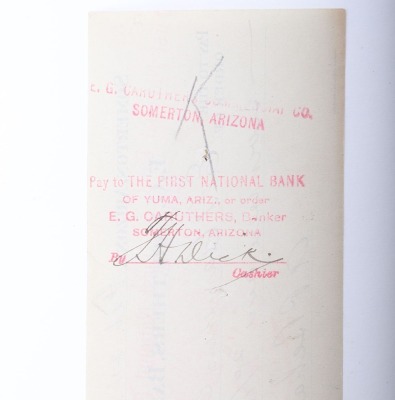 E. G. CARUTHERS COMMERCIAL CO.
SOMERTON, ARIZONA
Pay to THE FIRST NATIONAL BANK
OF YUMA, ARIZ., or order
E. G. CARUTHERS, Banker
SOMERTON, ARIZONA
By Dick
Cashier